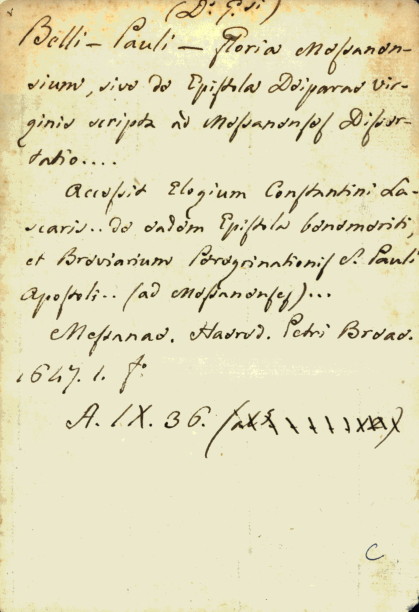 (D. G.si)
Belli - Pauli - Gloria Messanen-
sium, sive de Epistola Deiparae Vir-
ginis scripta ad Messanenses Disser-
tatio....
Accessit Elogium Constantini La-
scaris.. de eadem Epistola benemeriti,
et Breviarium Peregrinationis S. Pauli
Apostoli.. (ad Messanenses)...
Messanae. Haered. Petri Breae.
1647. 1. fo.
A. IX. 36.
C